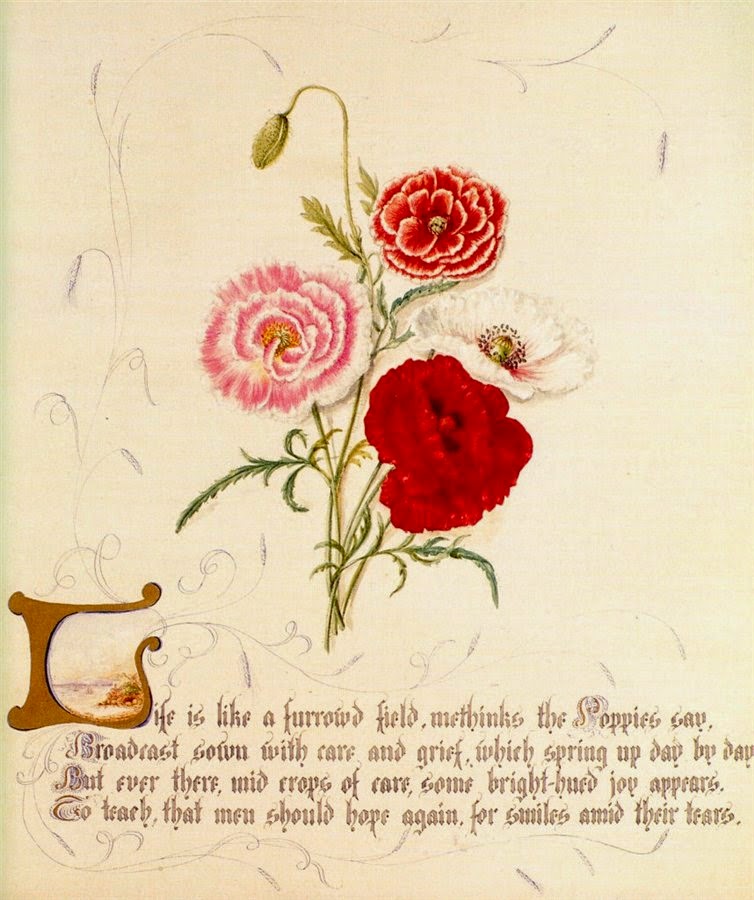 Life is like a furrowd field, methinks the Poppies say,
Broadcast sown with care and grief, which spring up day by day
But ever there, mid crops of care, some bright-hued joy appears.
To teach, that men should hope again, for smiles amid their tears.